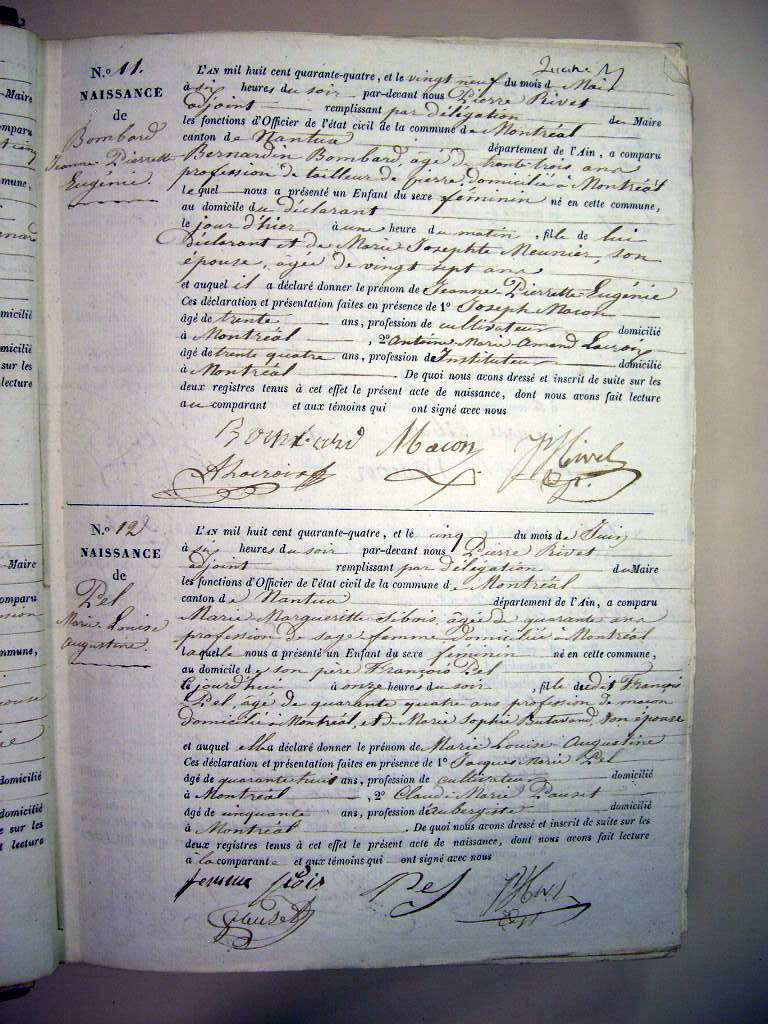 N.o 11.
NAISSANCE
de
Bombard
Jeanne Pierrette
Eugénie.
L'AN mil huit cent quarante-quatre, et le vingt neuf du mois de Mai
à six heures du soir par-devant nous Pierre Rivet
adjoint remplissant par délégation du Maire
les fonctions d'Officier de l'état civil de la commune de Montréal
canton de Nantua département de l'Ain, a comparu
Bernardin Bombard, agé de trente trois ans
profession de tailleur de pierre, domicilié à Montréal
lequel nous a présenté un Enfant du sexe féminin né en cette commune,
au domicile du déclarant
le jour d'hier à une heure du matin, fille de lui
Déclarant et de Marie Josephte Meunier, son
épouse, agée de vingt sept ans
et auquel il a déclaré donner le prénom de Jeanne Pierrette Eugénie
Ces déclaration et présentation faites en présence de 1o Joseph Macon
âgé de trente ans, profession de cultivateur domicilié
à Montréal, 2o Antoine Marie Amand Lacroix
âgé de trente quatre ans, profession de Instituteur domicilié
à Montréal. De quoi nous avons dressé et inscrit de suite sur les
deux registres tenus à cet effet le présent acte de naissance, dont nous avons fait lecture
au comparant et aux témoins qui ont signé avec nous
Bombard Macon PRivet
ALacroix
N.o 12
NAISSANCE
de
Pel
Marie Louise
Augustine.
L'AN mil huit cent quarante-quatre, et le cinq du mois de Juin
à six heures du soir par-devant nous Pierre Rivet
adjoint remplissant par délégation du Maire
les fonctions d'Officier de l'état civil de la commune de Montréal
canton de Nantua département de l'Ain, a comparu
Marie Margueritte agée de quarante ans
profession de sage femme domiciliée à Montréal
laquelle nous a présenté un Enfant du sexe féminin né en cette commune,
au domicile de son père François Pel
ce jourd'hui à onze heures du soir, fille dudit François
Pel, agé de quarante quatre ans profession de maçon
domicilié à Montréal, et de Marie Sophie son épouse
et auquel elle a déclaré donner le prénom de Marie Louise Augustine
Ces déclaration et présentation faites en présence de 1o Jacques Marie Pel
âgé de quarante huit ans, profession de cultivateur domicilié
à Montréal, 2o Claude Marie
âgé de cinquante ans, profession d'aubergiste domicilié
à Montréal. De quoi nous avons dressé et inscrit de suite sur les
deux registres tenus à cet effet le présent acte de naissance, dont nous avons fait lecture
a la comparante et aux témoins qui ont signé avec nous
femme Pel